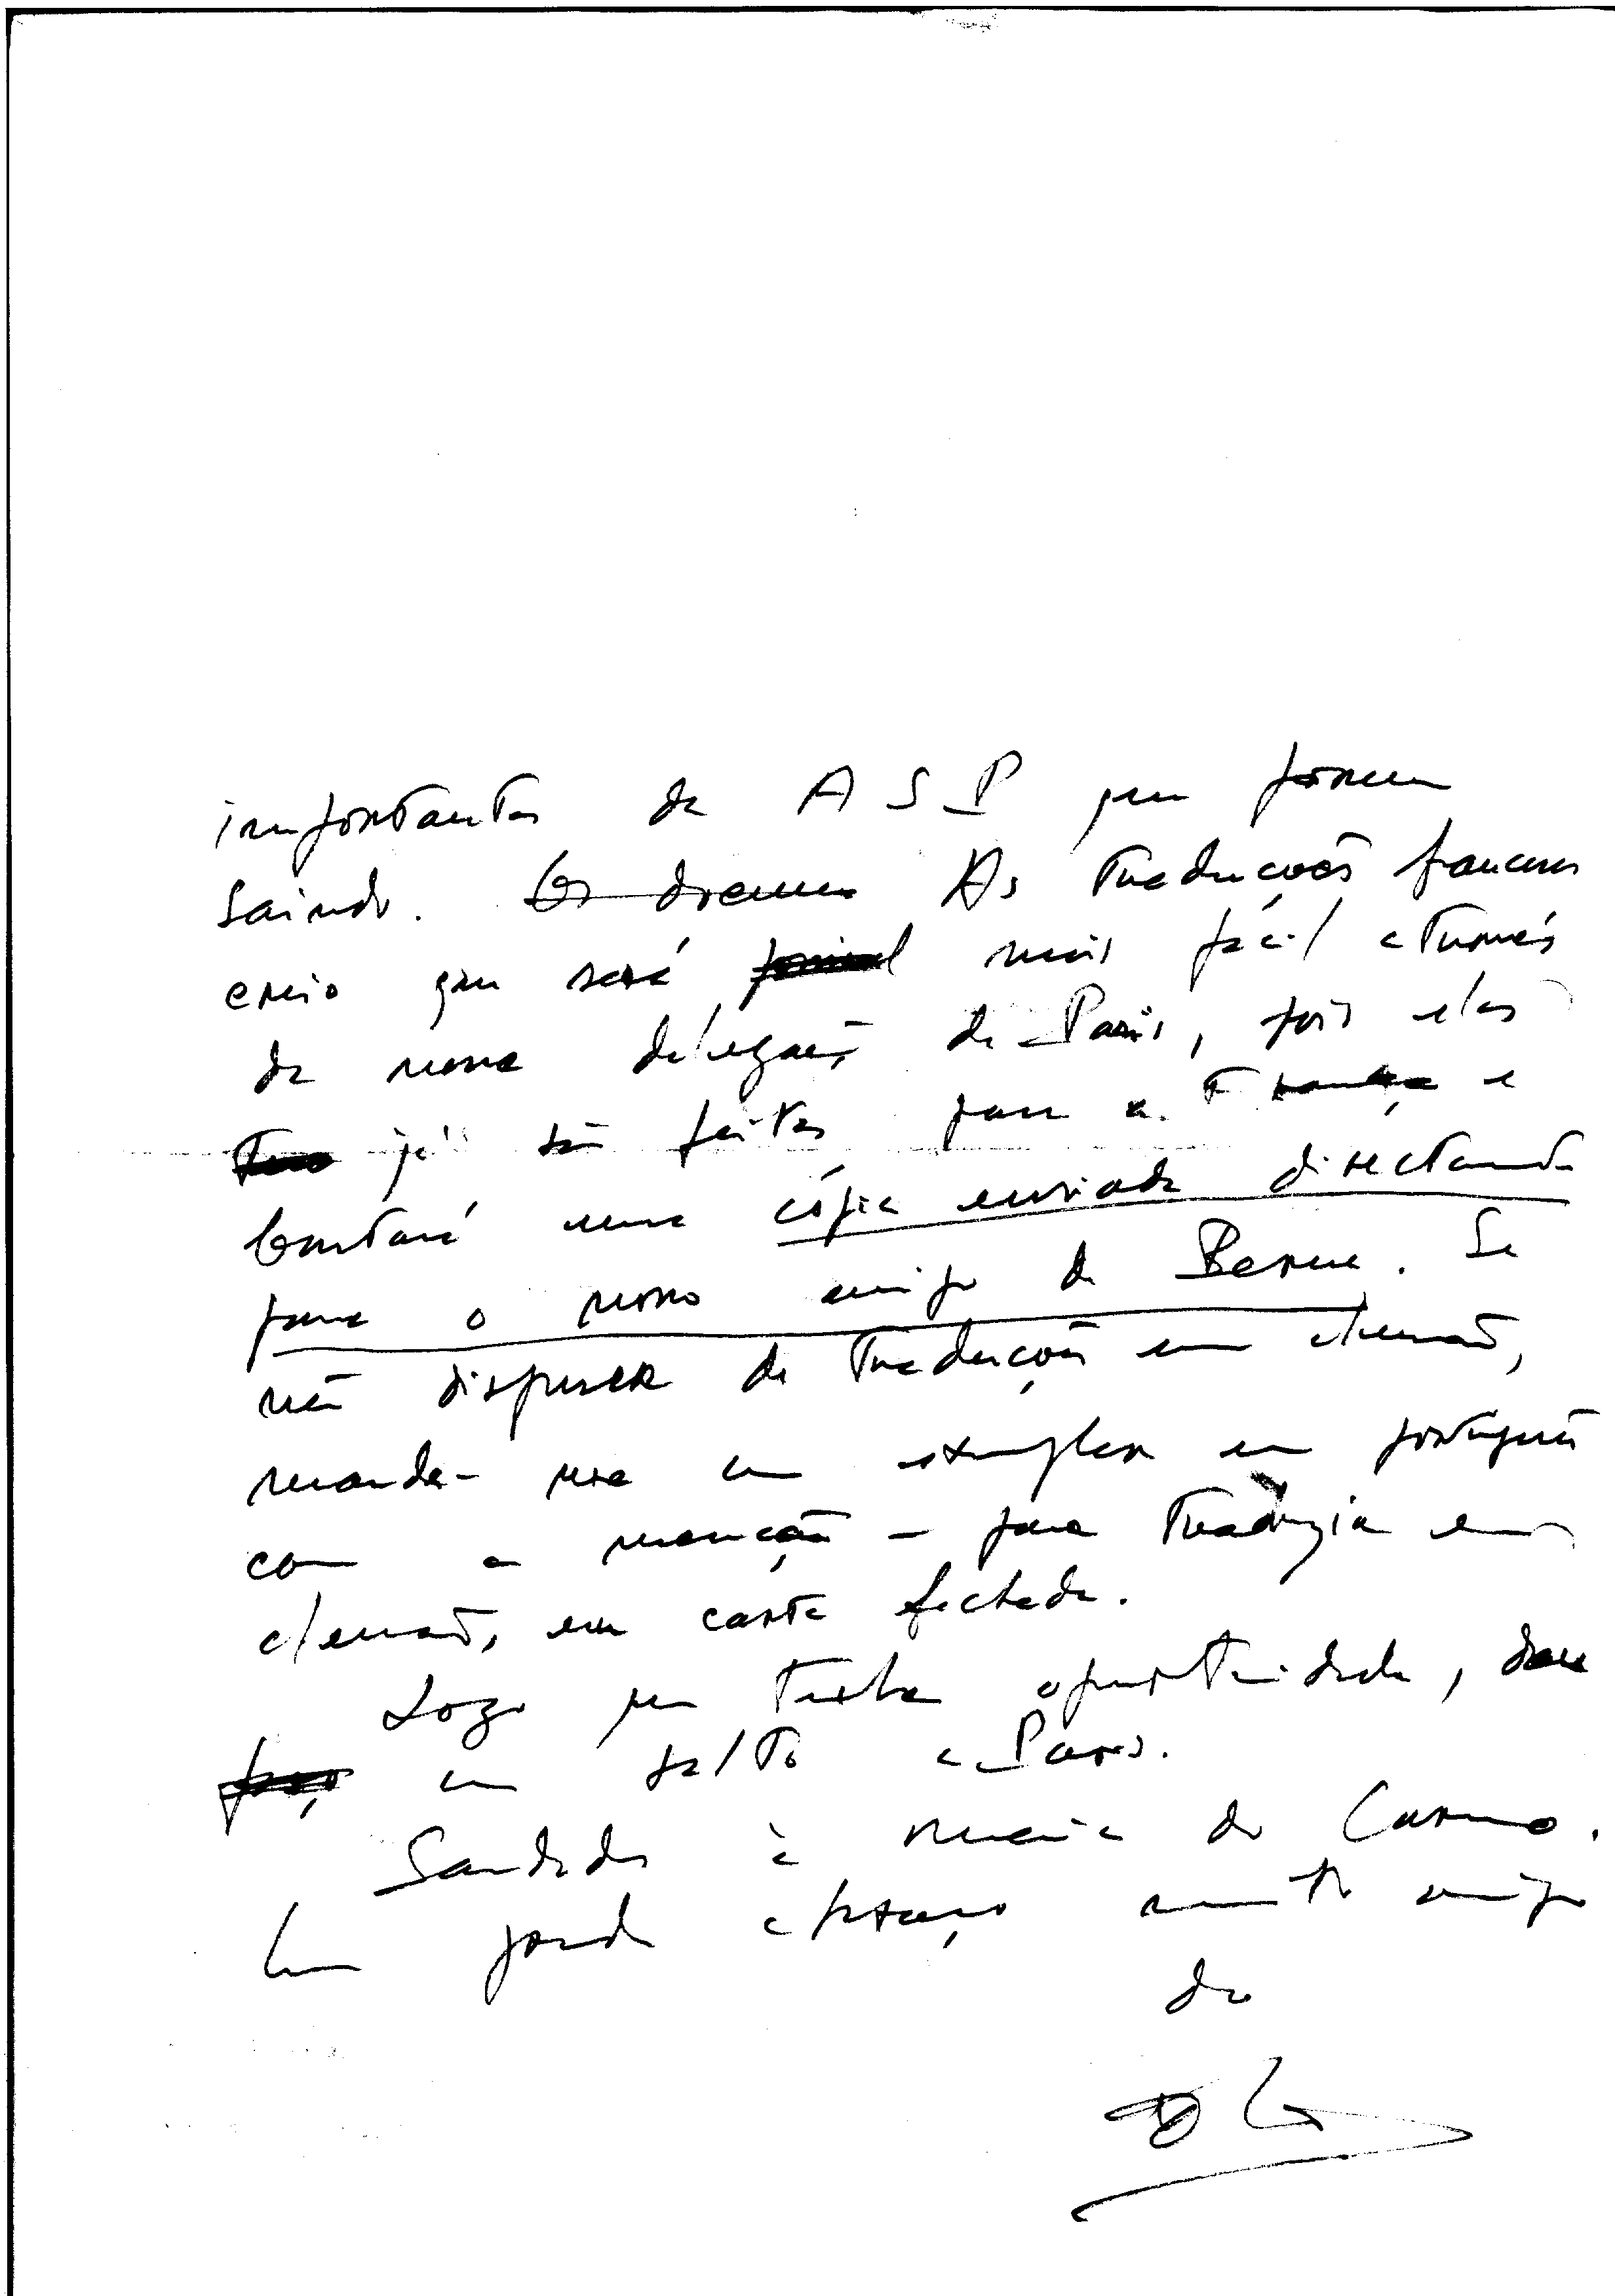 importantes da ASP que forem
saindo. Os docum As traducções francesas
creio que será mais fácil através
da nossa delegação de Paris, pois elas
já são feitas para a França e
bastará uma cópia enviada directamente
para o nosso amigo de Berne. Se
não dispuser de traducções em alemão,
mande-me um exemplar em português
com a menção – para traduzir em
alemão, em carta fechada.
Logo que tenha oportunidade, dou
um salto a Paris.
Saudades à Maria do Carmo.
Um grande abraço muito amigo
do